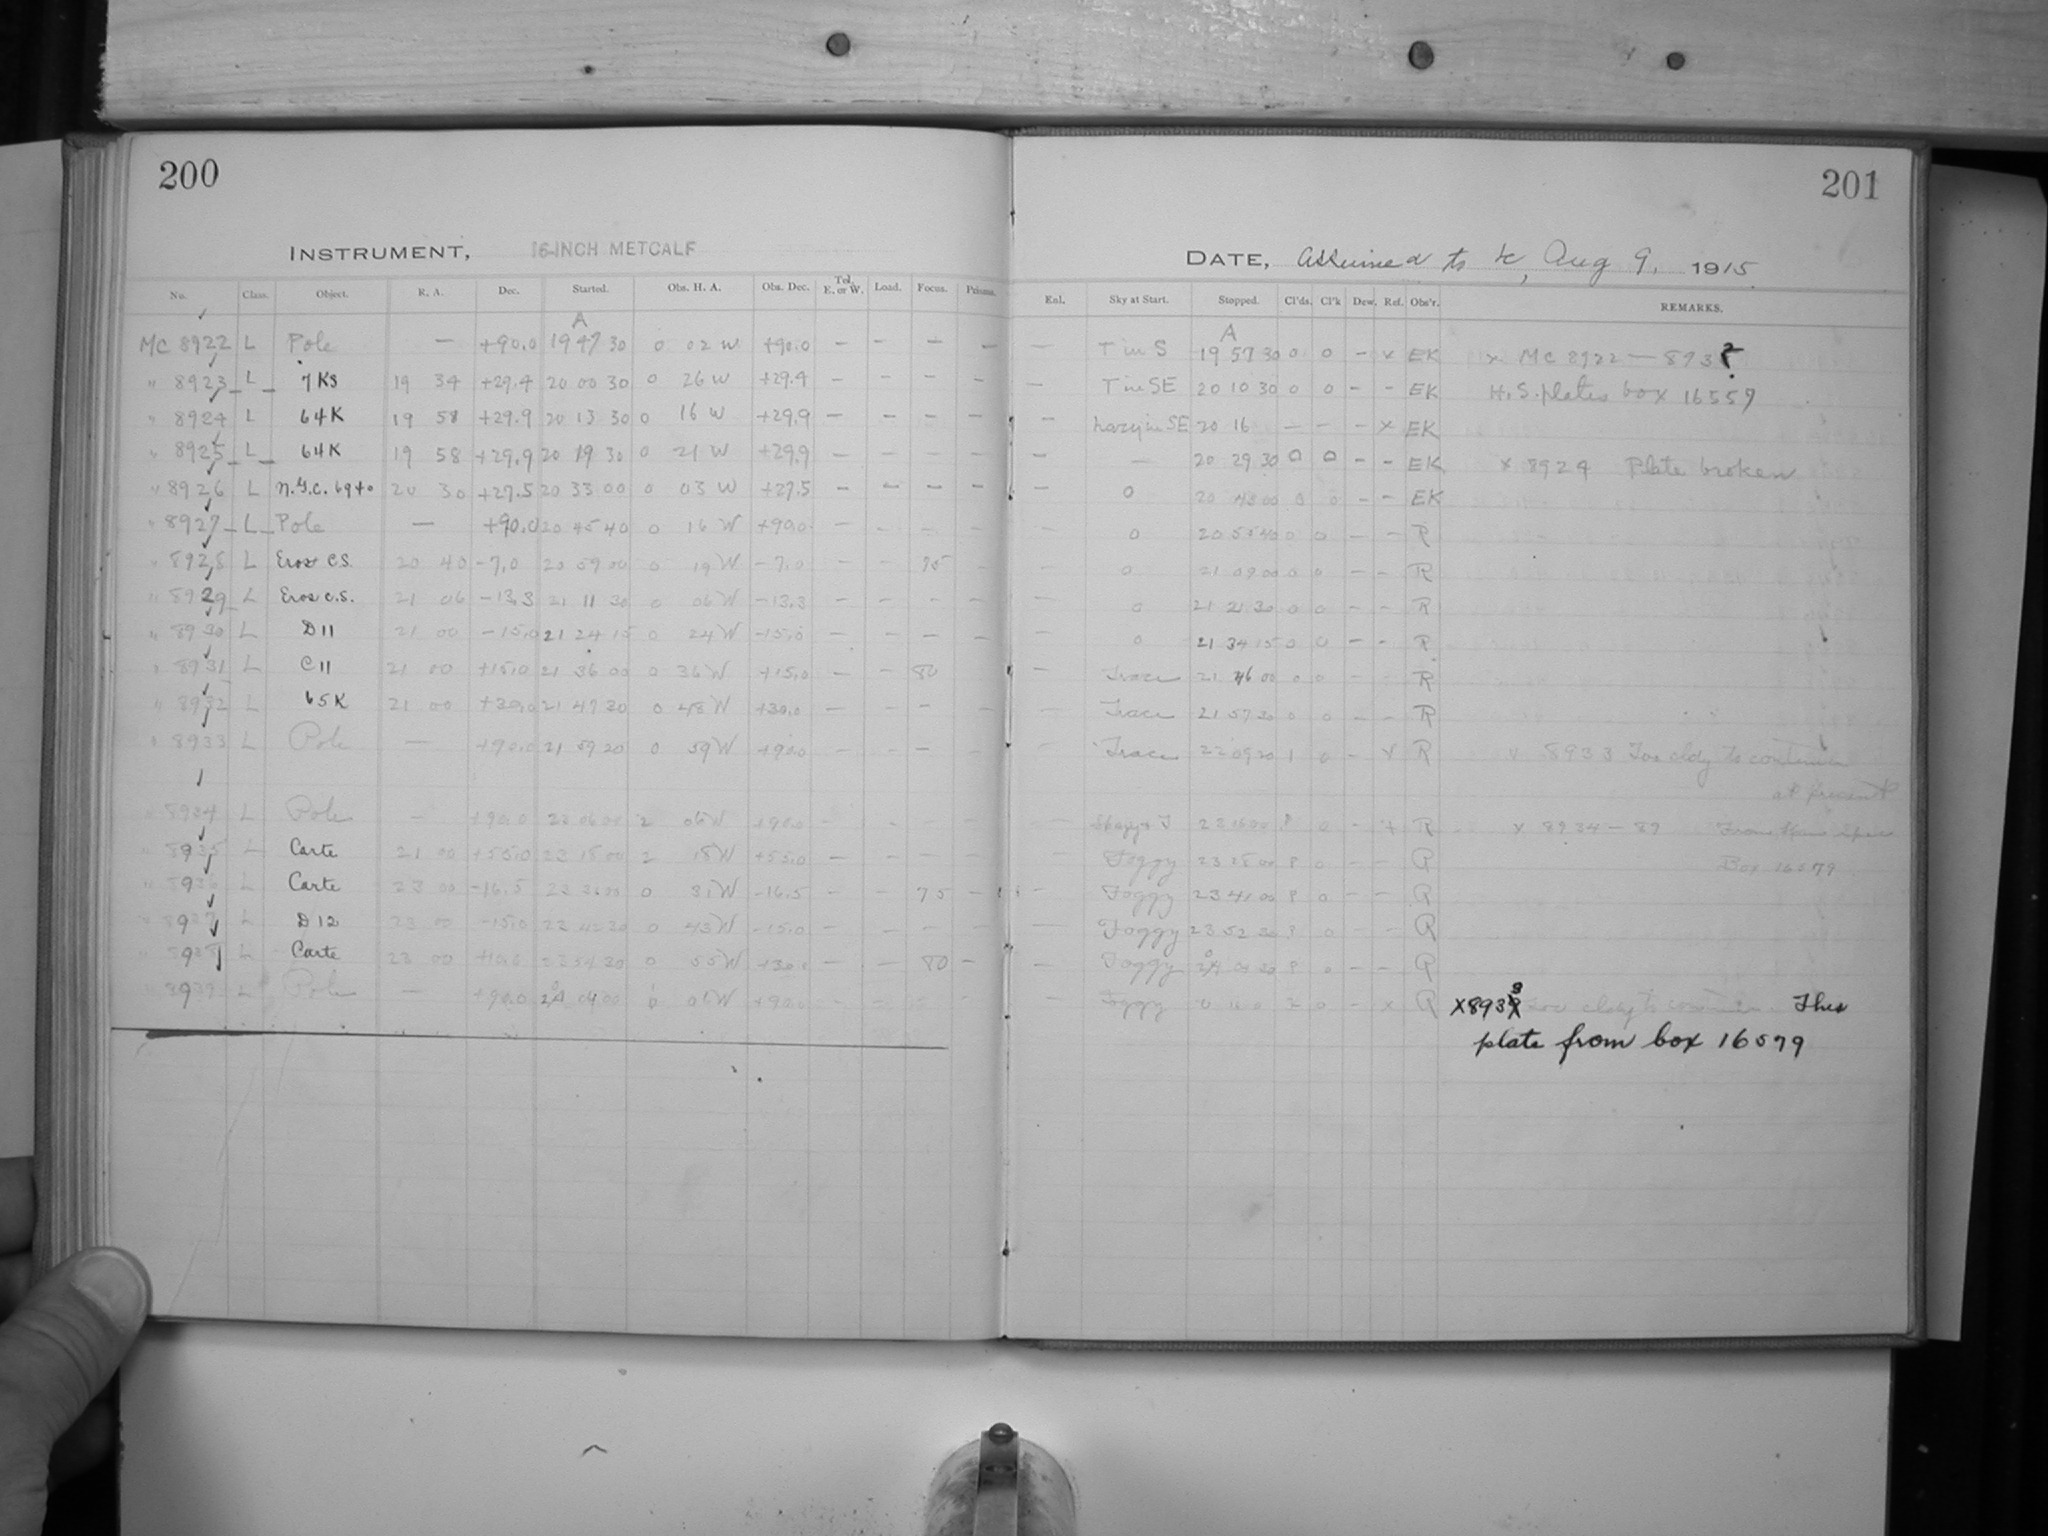 200
201
INSTRUMENT, 16-INCH METCALF
DATE, Assumed to be, Aug 9, 1915
No. Class. Object. R. A. Dec. Started. Obs. H. A. Obs. Dec. Tel. E. or W. Load. Focus. Prisms. Enl. Sky at Start. Stopped. Cl'ds. Cl'k Dew. Ref. Obs'r. REMARKS.
A A
MC 8922 L Pole — +90.0 19 47 30 0 02 W +90.0 — — — — — T in S 19 57 30 0 0 — x EK x MC 8922 — 893?
" 8923 L 7KS 19 34 +29.4 20 00 30 0 26 W +29.4 — — — — — T in SE 20 10 30 0 0 — — EK H.S. plates box 16559
" 8924 L 64K 19 58 +29.9 20 13 30 0 16 W +29.9 — — — — — hazy in SE 20 16 — — — x EK
" 8925 L 64K 19 58 +29.9 20 19 30 0 21 W +29.9 — — — — — — 20 29 30 0 0 — — EK x 8924 Plate broken
" 8926 L N.G.C. 6940 20 30 +27.5 20 33 00 0 03 W +27.5 — — — — — 0 20 43 00 0 0 — — EK
" 8927 L Pole — +90.0 20 45 40 0 16 W +90.0 — — — — — 0 20 55 40 0 0 — — R
" 8928 L Eros C.S. 20 40 -7.0 20 59 00 0 19 W -7.0 — — 75 — — 0 21 09 00 0 0 — — R
" 8929 L Eros C.S. 21 06 -13.3 21 11 30 0 06 W -13.3 — — — — — 0 21 21 30 0 0 — — R
" 8930 L D11 21 00 -15.0 21 24 15 0 24 W -15.0 — — — — — 0 21 34 15 0 0 — — R
" 8931 L C11 21 00 +15.0 21 36 00 0 36 W +15.0 — — 80 — Trace 21 46 00 0 0 — — R
" 8932 L 65K 21 00 +30.0 21 47 30 0 48 W +30.0 — — — — — Trace 21 57 30 0 0 — — R
" 8933 L Pole — +90.0 21 59 20 0 59 W +90.0 — — — — — Trace 22 09 20 1 0 — x R x 8933 Too cldy to continue
at present
" 8934 L Pole — +90.0 23 06 00 2 06 W +90.0 — — — — — 23 16 00 0 — x R x 8934 — 89 From
" 8935 L Carte 21 00 +55.0 23 15 00 2 18 W +55.0 — — — — — Foggy 23 25 00 0 — — R Box 16579
" 8936 L Carte 23 00 -16.5 0 31 W -16.5 — — 75 — — Foggy 23 41 00 0 — — R
" 8937 L D12 23 00 -15.0 23 42 30 0 43 W -15.0 — — — — — Foggy 23 52 30 0 — — R
" 8938 L Carte 23 00 23 54 30 0 55 W +30.0 — — 80 — — Foggy 04 30 0 — — R
" 8939 L Pole — +90.0 04 00 W +90.0 — — — — — Foggy 0 — x R X8938 Too cldy to continue. This
plate from box 16579